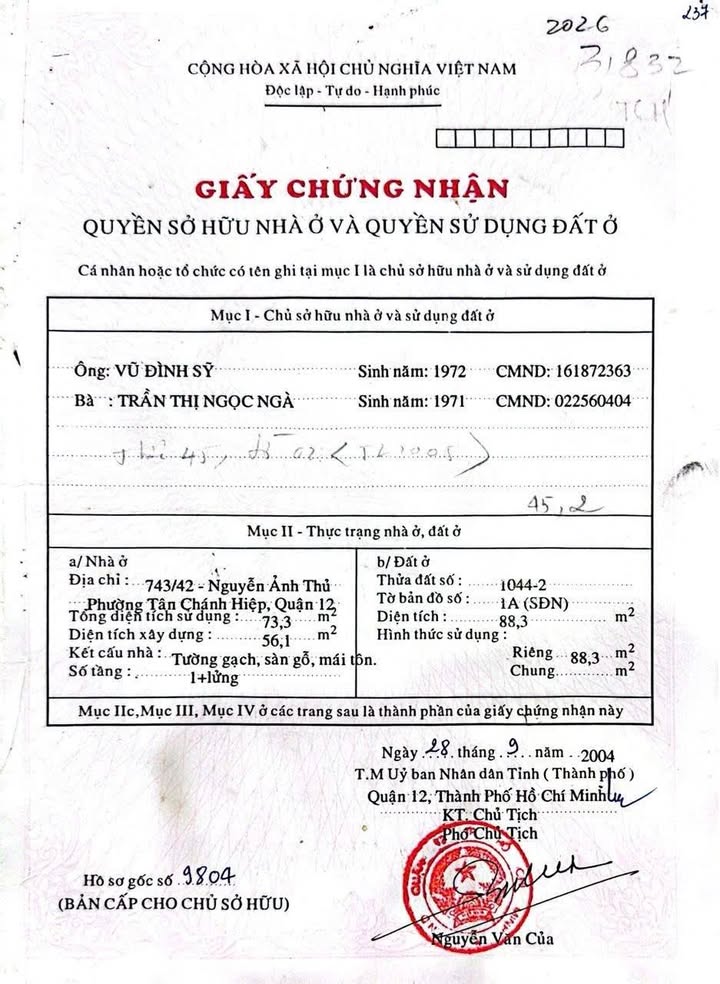 237
2026
31832
CỘNG HÒA XÃ HỘI CHỦ NGHĨA VIỆT NAM
Độc lập - Tự do - Hạnh phúc
GIẤY CHỨNG NHẬN
QUYỀN SỞ HỮU NHÀ Ở VÀ QUYỀN SỬ DỤNG ĐẤT Ở
Cá nhân hoặc tổ chức có tên ghi tại mục I là chủ sở hữu nhà ở và sử dụng đất ở
Mục I - Chủ sở hữu nhà ở và sử dụng đất ở
Ông: VŨ ĐÌNH SỸ Sinh năm: 1972 CMND: 161872363
Bà : TRẦN THỊ NGỌC NGÀ Sinh năm: 1971 CMND: 022560404
45, 02
45,2
Mục II - Thực trạng nhà ở, đất ở
a/ Nhà ở
Địa chỉ : 743/42 - Nguyễn Ảnh Thủ
Phường Tân Chánh Hiệp, Quận 12
Tổng diện tích sử dụng : 73,3 m2
Diện tích xây dựng : 56,1 m2
Kết cấu nhà : Tường gạch, sàn gỗ, mái tôn.
Số tầng : 1+lửng
b/ Đất ở
Thửa đất số : 1044-2
Tờ bản đồ số : 1A (SĐN)
Diện tích : 88,3 m2
Hình thức sử dụng :
Riêng 88,3 m2
Chung m2
Mục IIc,Mục III, Mục IV ở các trang sau là thành phần của giấy chứng nhận này
Ngày 28 tháng 9 năm 2004
T.M Uỷ ban Nhân dân Tỉnh ( Thành phố )
Quận 12, Thành Phố Hồ Chí Minh
KT. Chủ Tịch
Phó Chủ Tịch
Nguyễn Văn Của
Hồ sơ gốc số 9804
(BẢN CẤP CHO CHỦ SỞ HỮU)